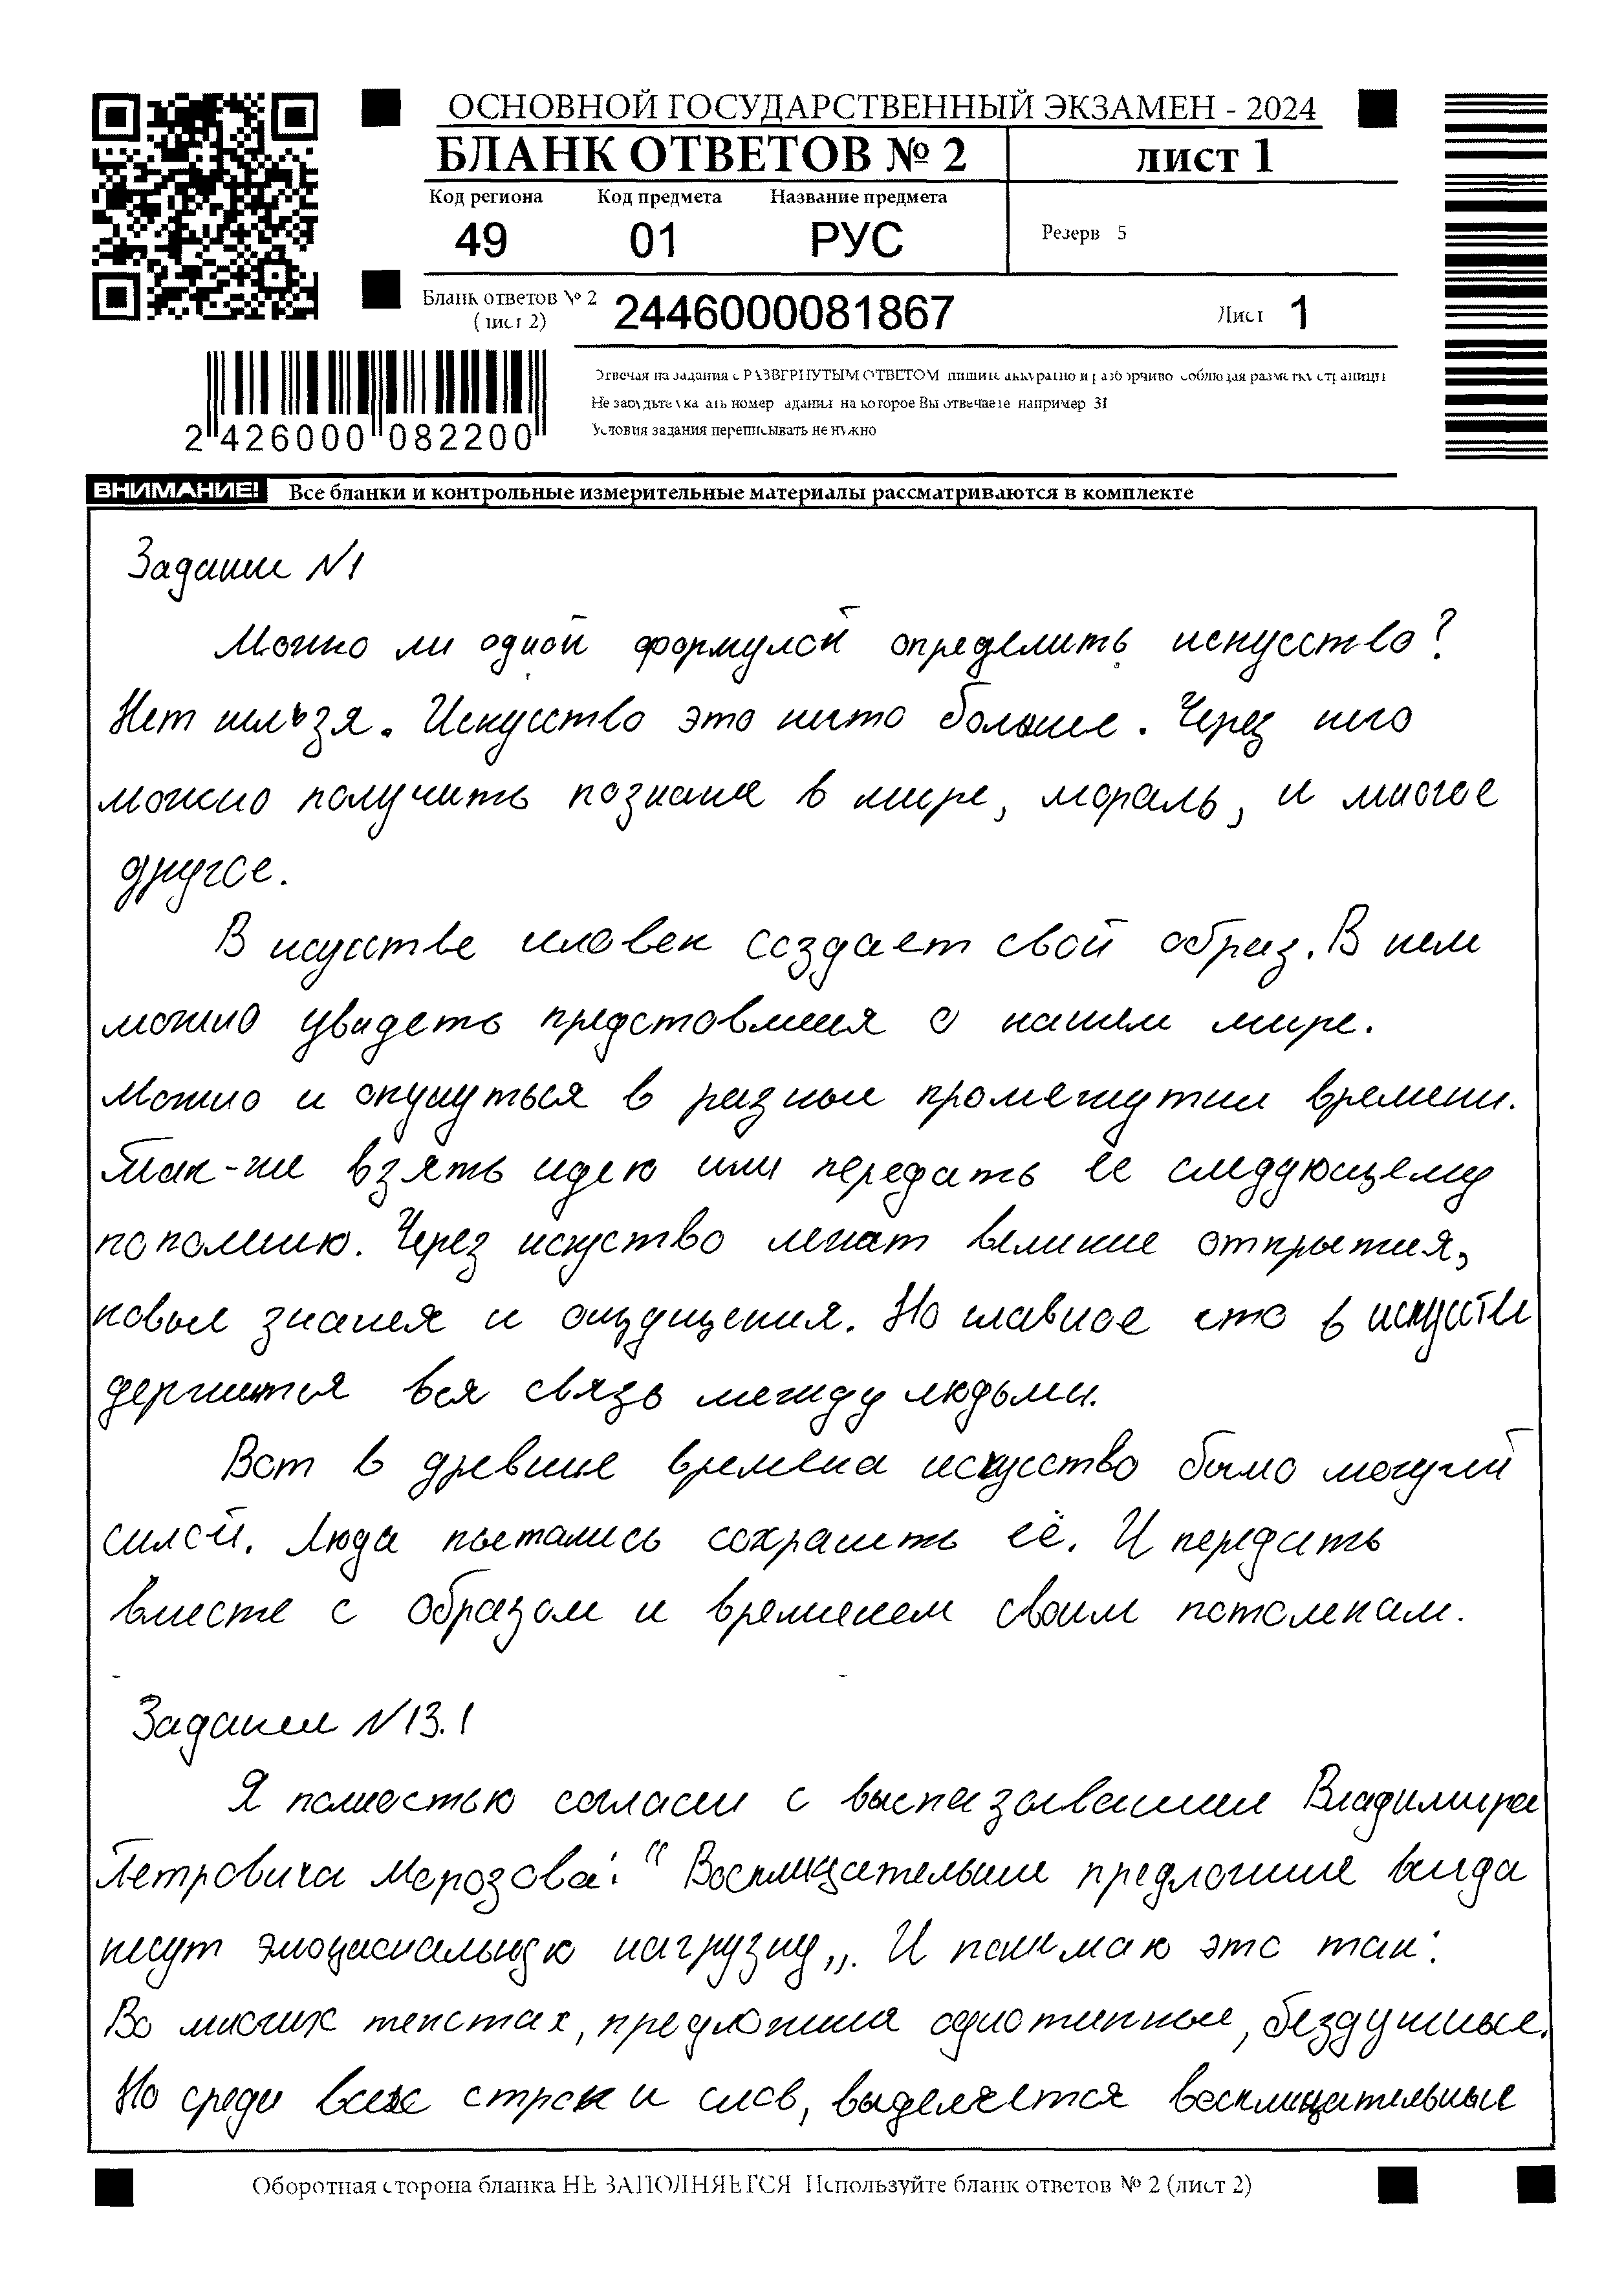 ОСНОВНОЙ ГОСУДАРСТВЕННЫЙ ЭКЗАМЕН - 2024
БЛАНК ОТВЕТОВ № 2
ЛИСТ 1
Код региона Код предмета Название предмета
49 01 РУС
Резерв 5
Бланк ответов № 2
(лист 2)
2446000081867
Лист 1
Отвечая на задания с РАЗВЕРНУТЫМ ОТВЕТОМ пишите аккуратно и разборчиво соблюдая разметку страницы
Не забудьте указать номер задания на которое Вы отвечаете например 31
Условия задания переписывать не нужно
2 426000 082200
ВНИМАНИЕ! Все бланки и контрольные измерительные материалы рассматриваются в комплекте
Задание N1
Можно ли одной формулой определить искусство?
Нет нельзя. Искусство это нечто больше. Через него
можно получить познания в мире, мораль, и многое
другое.
В исусстве человек создает свой образ. В нем
можно увидеть предстовления о нашем мире.
Можно и окунуться в разные промежутки времени.
Так-же взять идею или передать её следующему
поколению. Через искуство лежат великие открытия,
новые знания и ощущения. Но главное что в искустве
держится вся связь между людьми.
Вот в древние времена искусство было могучей
силой. Люди пытались сохранить её. И передать
вместе с образом и временем своим потомкам.
Задание N13.1
Я полностью согласен с высказыванием Владимира
Петровича Морозова: "Восклицательные предложение всегда
несут эмоциональную нагрузку„. И понимаю это так:
Во многих текстах, предложения однотипные, бездушные.
Но среди всех строк и слов, выделяется восклицательные
Оборотная сторона бланка НЕ ЗАПОЛНЯЕТСЯ Используйте бланк ответов № 2 (лист 2)